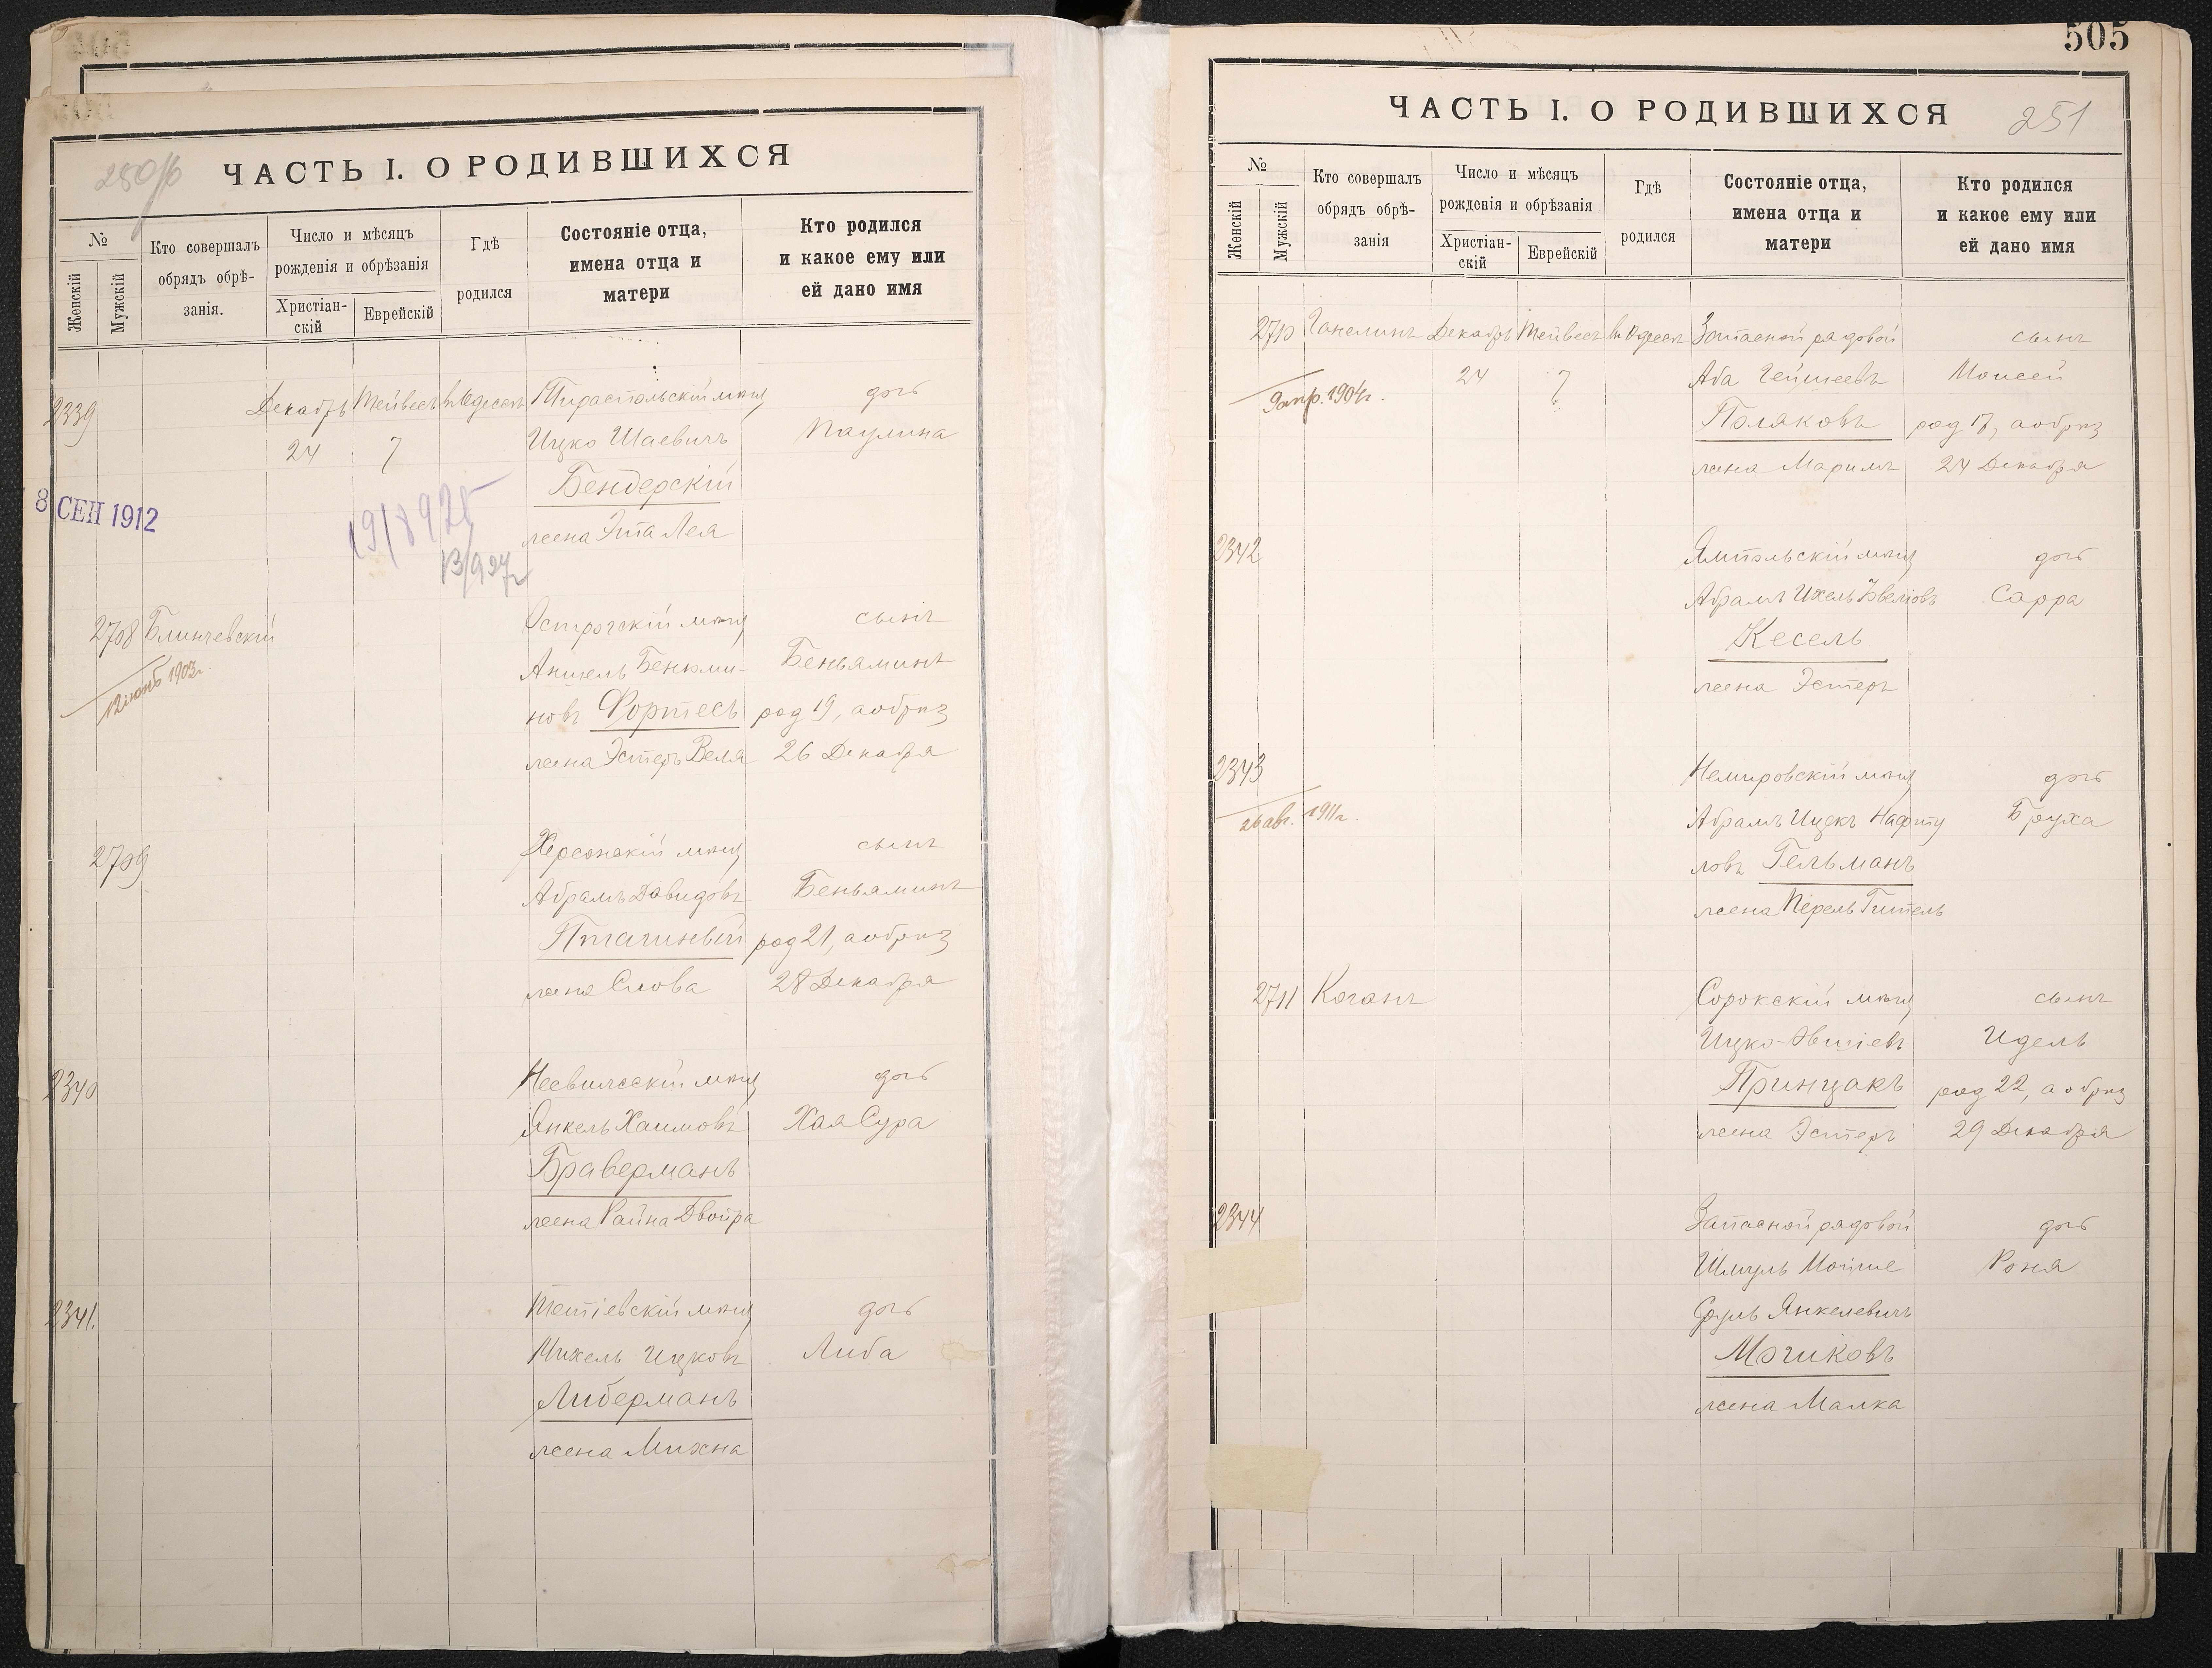 250/б
ЧАСТЬ I. О РОДИВШИХСЯ
№
Женскій
Мужскій
Кто совершалъ
обрядъ обрѣ-
занія.
Число и мѣсяцъ
рожденія и обрѣзанія
Христіан-
скій
Еврейскій
Гдѣ
родился
Состояніе отца,
имена отца и
матери
Кто родился
и какое ему или
ей дано имя
2339 Декабрь Тейвесъ въ Одессѣ Тираспольскій мѣщ дочь
24 7 Ицко Шаевичъ Паулина
Бендерскій
8 СЕН 1912
жена Эта Лея
2708 Блинчевскій Острогскій мѣщ сынъ
Аншель Бенюми- Беньяминъ
12 1903г.
новъ Фортесъ род 19, а обрѣз
жена Эстеръ Веля 26 Декабря
2709 Херсонскій мѣщ сынъ
Абрамъ Давидовъ Беньяминъ
род 21, а обрѣз
жена Слова 28 Декабря
2340 Несвижскій мѣщ дочь
Янкель Хаимовъ Хая Сура
Браверманъ
жена Райна Двойра
2341. Тетіевскій мѣщ дочь
Михель Ицковъ Либа
Либерманъ
жена Михна
505
ЧАСТЬ I. О РОДИВШИХСЯ 251
№
Женскій
Мужскій
Кто совершалъ
обрядъ обрѣ-
занія
Число и мѣсяцъ
рожденія и обрѣзанія
Христіан-
скій
Еврейскій
Гдѣ
родился
Состояніе отца,
имена отца и
матери
Кто родился
и какое ему или
ей дано имя
2710 Ганелинъ Декабрь Тейвесъ въ Одессѣ Запасной рядовой сынъ
24 7 Аба Моисей
9 апр. 1904г.
Поляковъ род 17, а обрѣз
жена Маримъ 24 Декабря
2342 Ямпольскій мѣщ дочь
Абрамъ Ихель Сарра
Кесель
жена Эстеръ
2343 Немировскій мѣщ дочь
26 авг. 1911г.
Абрамъ Ицекъ Нафту Бруха
ловъ Гельманъ
жена Перель Гитель
2711 Коганъ Сорокскій мѣщ сынъ
Идель
Принцакъ род 22, а обрѣз
жена Эстеръ 29 Декабря
2344 Запасной рядовой дочь
Шмуль Мойше Роня
Сруль Янкелевичъ
Мочиковъ
жена Малка